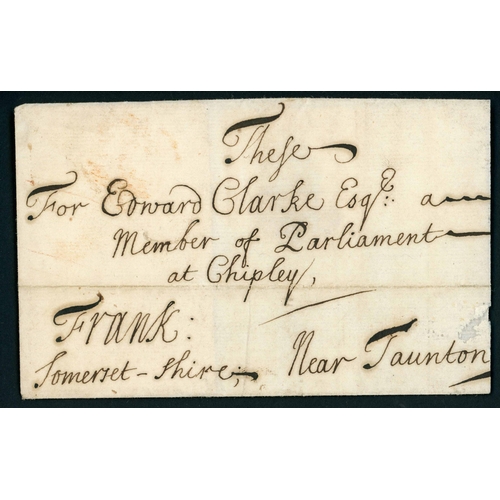 These
For Edward Clarke Esqr. a
Member of Parliament
at Chipley,
Frank:
Somerset-shire; Near Taunton